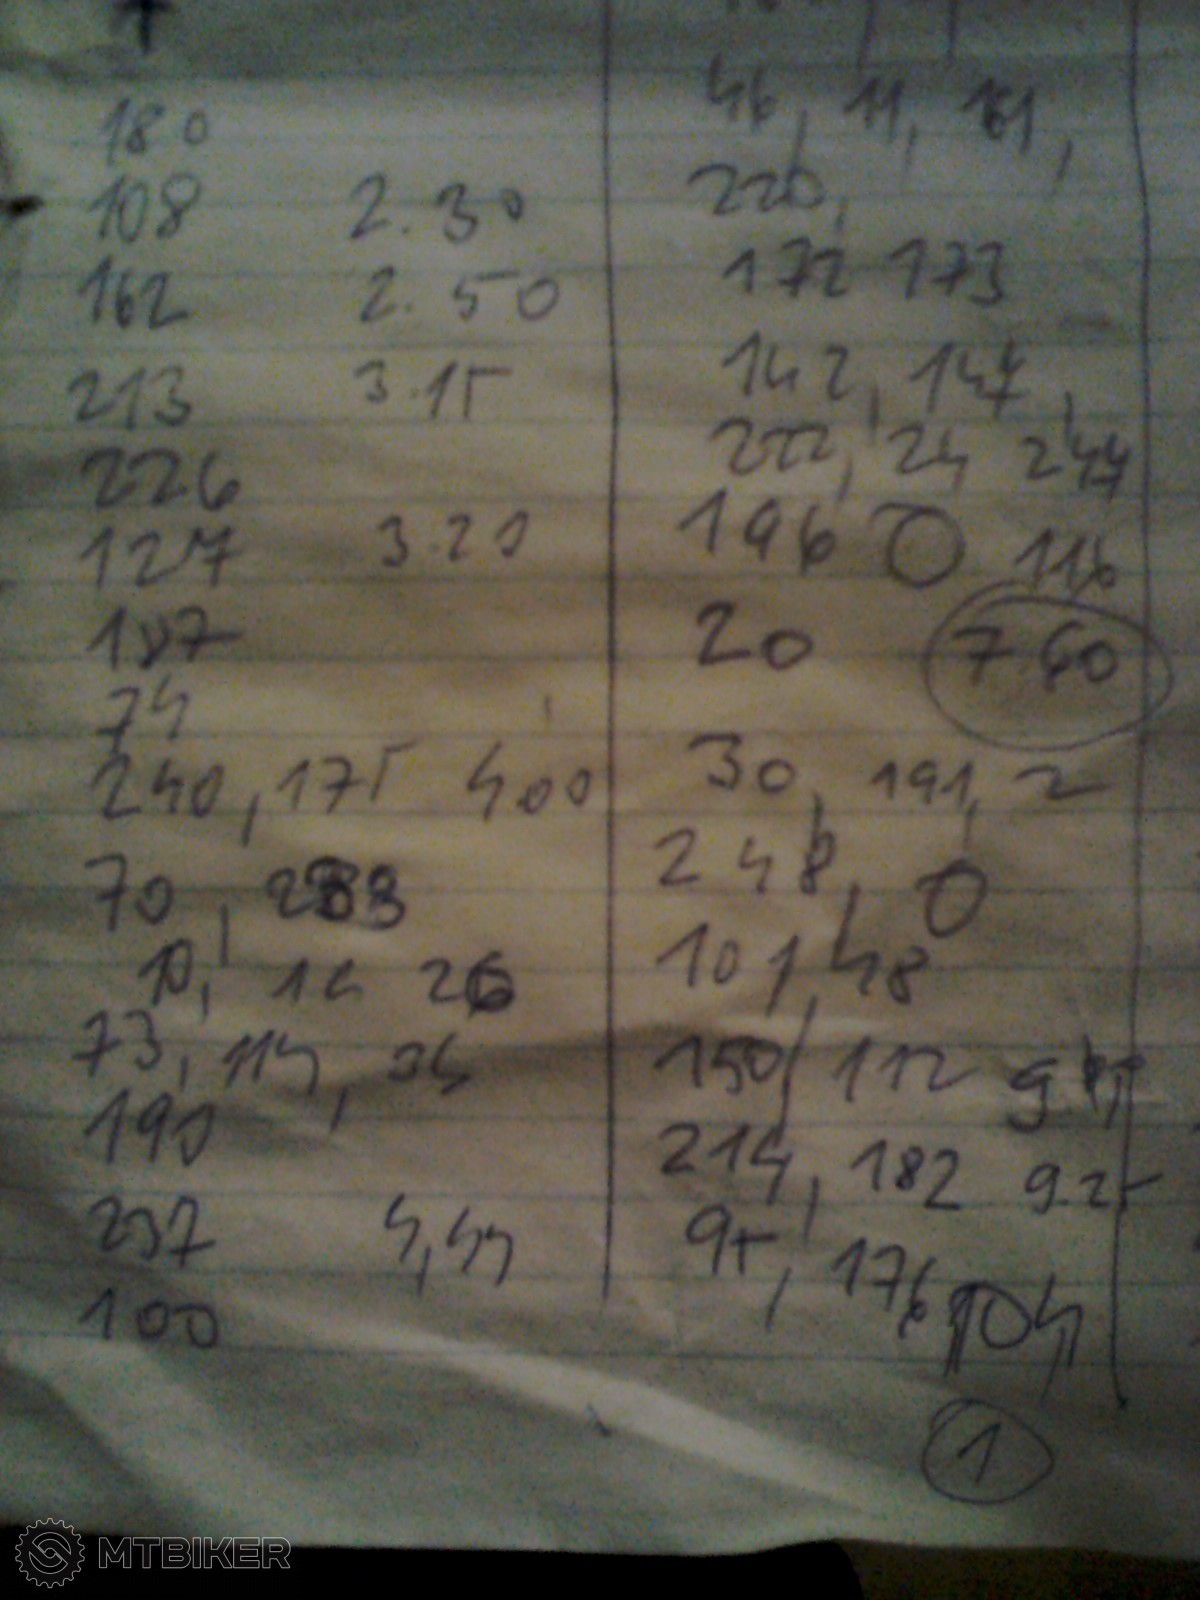 180
108 2.30
162 2.50
213 3.15
226
127 3.20
187
74
240, 175 400
70, 233
10, 14 26
73, 114, 34
190
237 4,44
100
46, 11, 161,
220,
172 173
142, 147,
222, 24 244
196 0 116
20 7.60
30, 191, 2
248, 0
101, 48
150, 112
214, 182 9.25
95, 176 104
1
MTBIKER